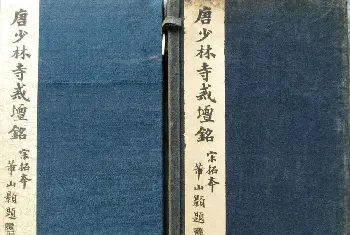 唐少林寺戒壇銘
宋拓本
華山顥題
唐少林寺戒壇銘
宋拓本
華山顥題